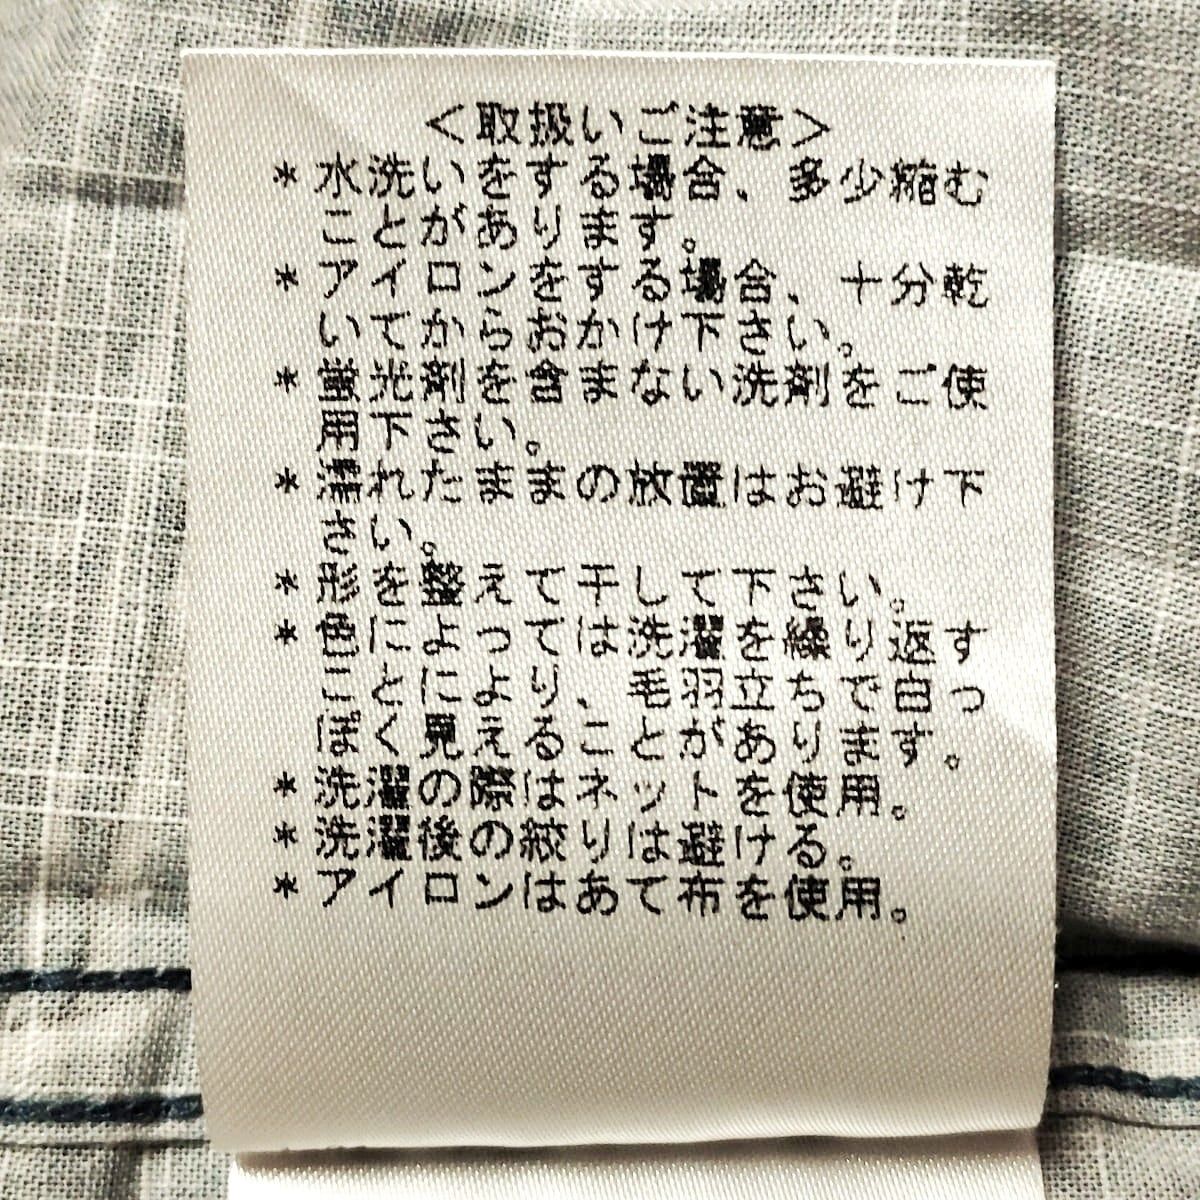 <取扱いご注意>
*水洗いをする場合、多少縮む
ことがあります。
*アイロンをする場合、十分乾
いてからおかけ下さい。
*蛍光剤を含まない洗剤をご使
用下さい。
*濡れたままの放置はお避け下
さい。
*形を整えて干して下さい。
*色によっては洗濯を繰り返す
ことにより、毛羽立ちで白っ
ぽく見えることがあります。
*洗濯の際はネットを使用。
*洗濯後の絞りは避ける。
*アイロンはあて布を使用。